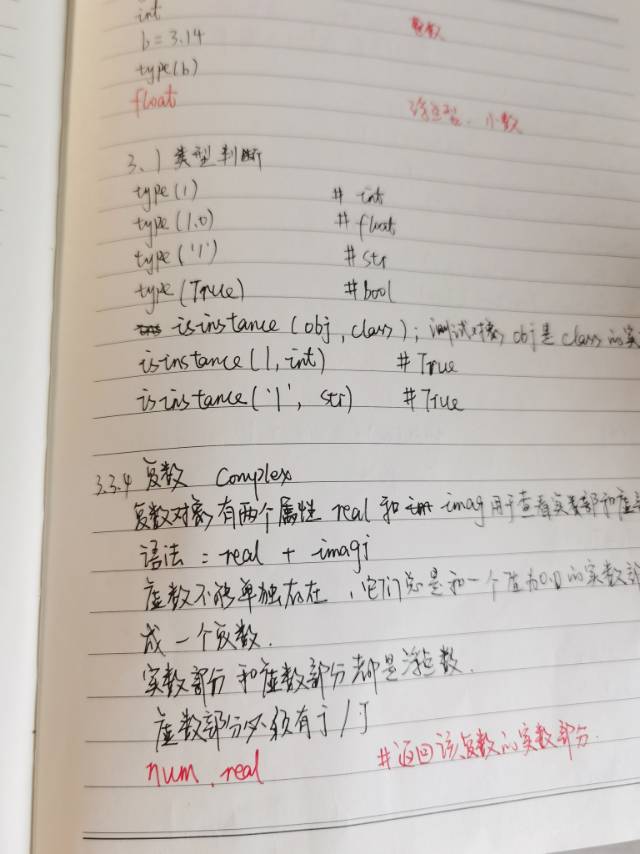 int
b = 3.14 整数
type(b)
float 浮点型、小数
3.1 类型判断
type(1) # int
type(1.0) # float
type('1') # str
type(True) # bool
isinstance(obj, class); 测试对象 obj是 class的实
isinstance(1, int) # True
isinstance('1', str) # True
3.3.4 复数 Complex
复数对象有两个属性 real 和 imag 用于查看实数部和虚
语法:real + imagj
虚数不能单独存在,它们总是和一个值为0.0的实数部
成一个复数.
实数部分和虚数部分都是浮点数.
虚数部分必须有j/J
num.real #返回该复数的实数部分.